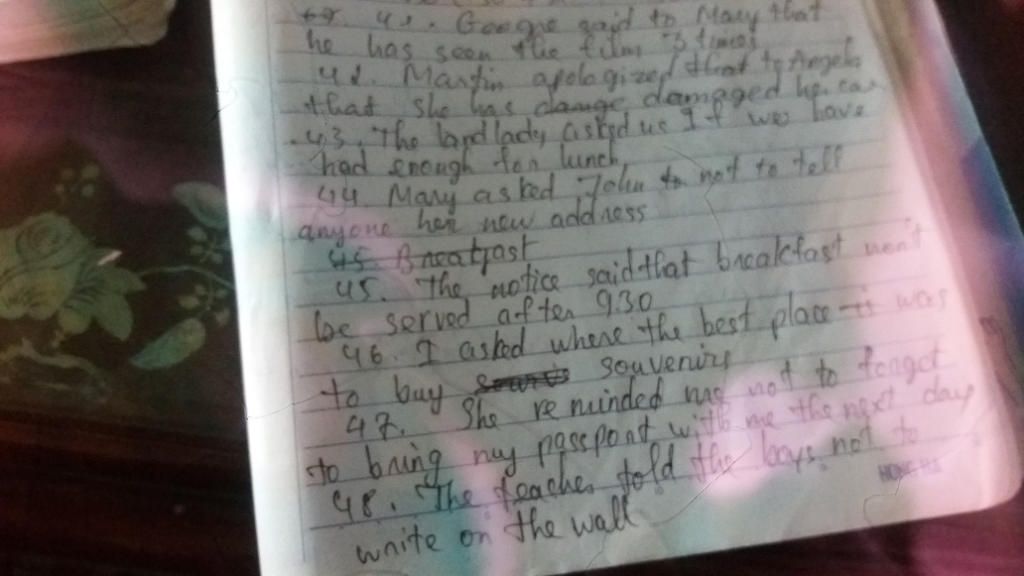 41. Geogre said to Mary that
he has seen the film 3 times
42. Martin apologized that to Angela
that she has damge damaged her car
43. The landlady asked us If we have
had enough for lunch
44. Mary asked John to not to tell
anyone her new address
45 Breatfast
45. The notice said that breakfast won't
be served after 930
46. I asked where the best place it was
to buy souvenirs
47. She reminded me not to forget
to bring my passport with me the next day
48. The teacher told the boys not to
write on the wall
HONG HA